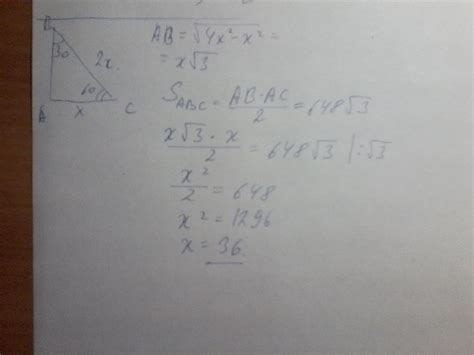 B
30
2x
60
A
x
C
AB = √4x²-x² =
= x√3
S ABC = AB·AC/2 = 648√3
x√3·x/2 = 648√3 |:√3
x²/2 = 648
x² = 1296
x = 36.